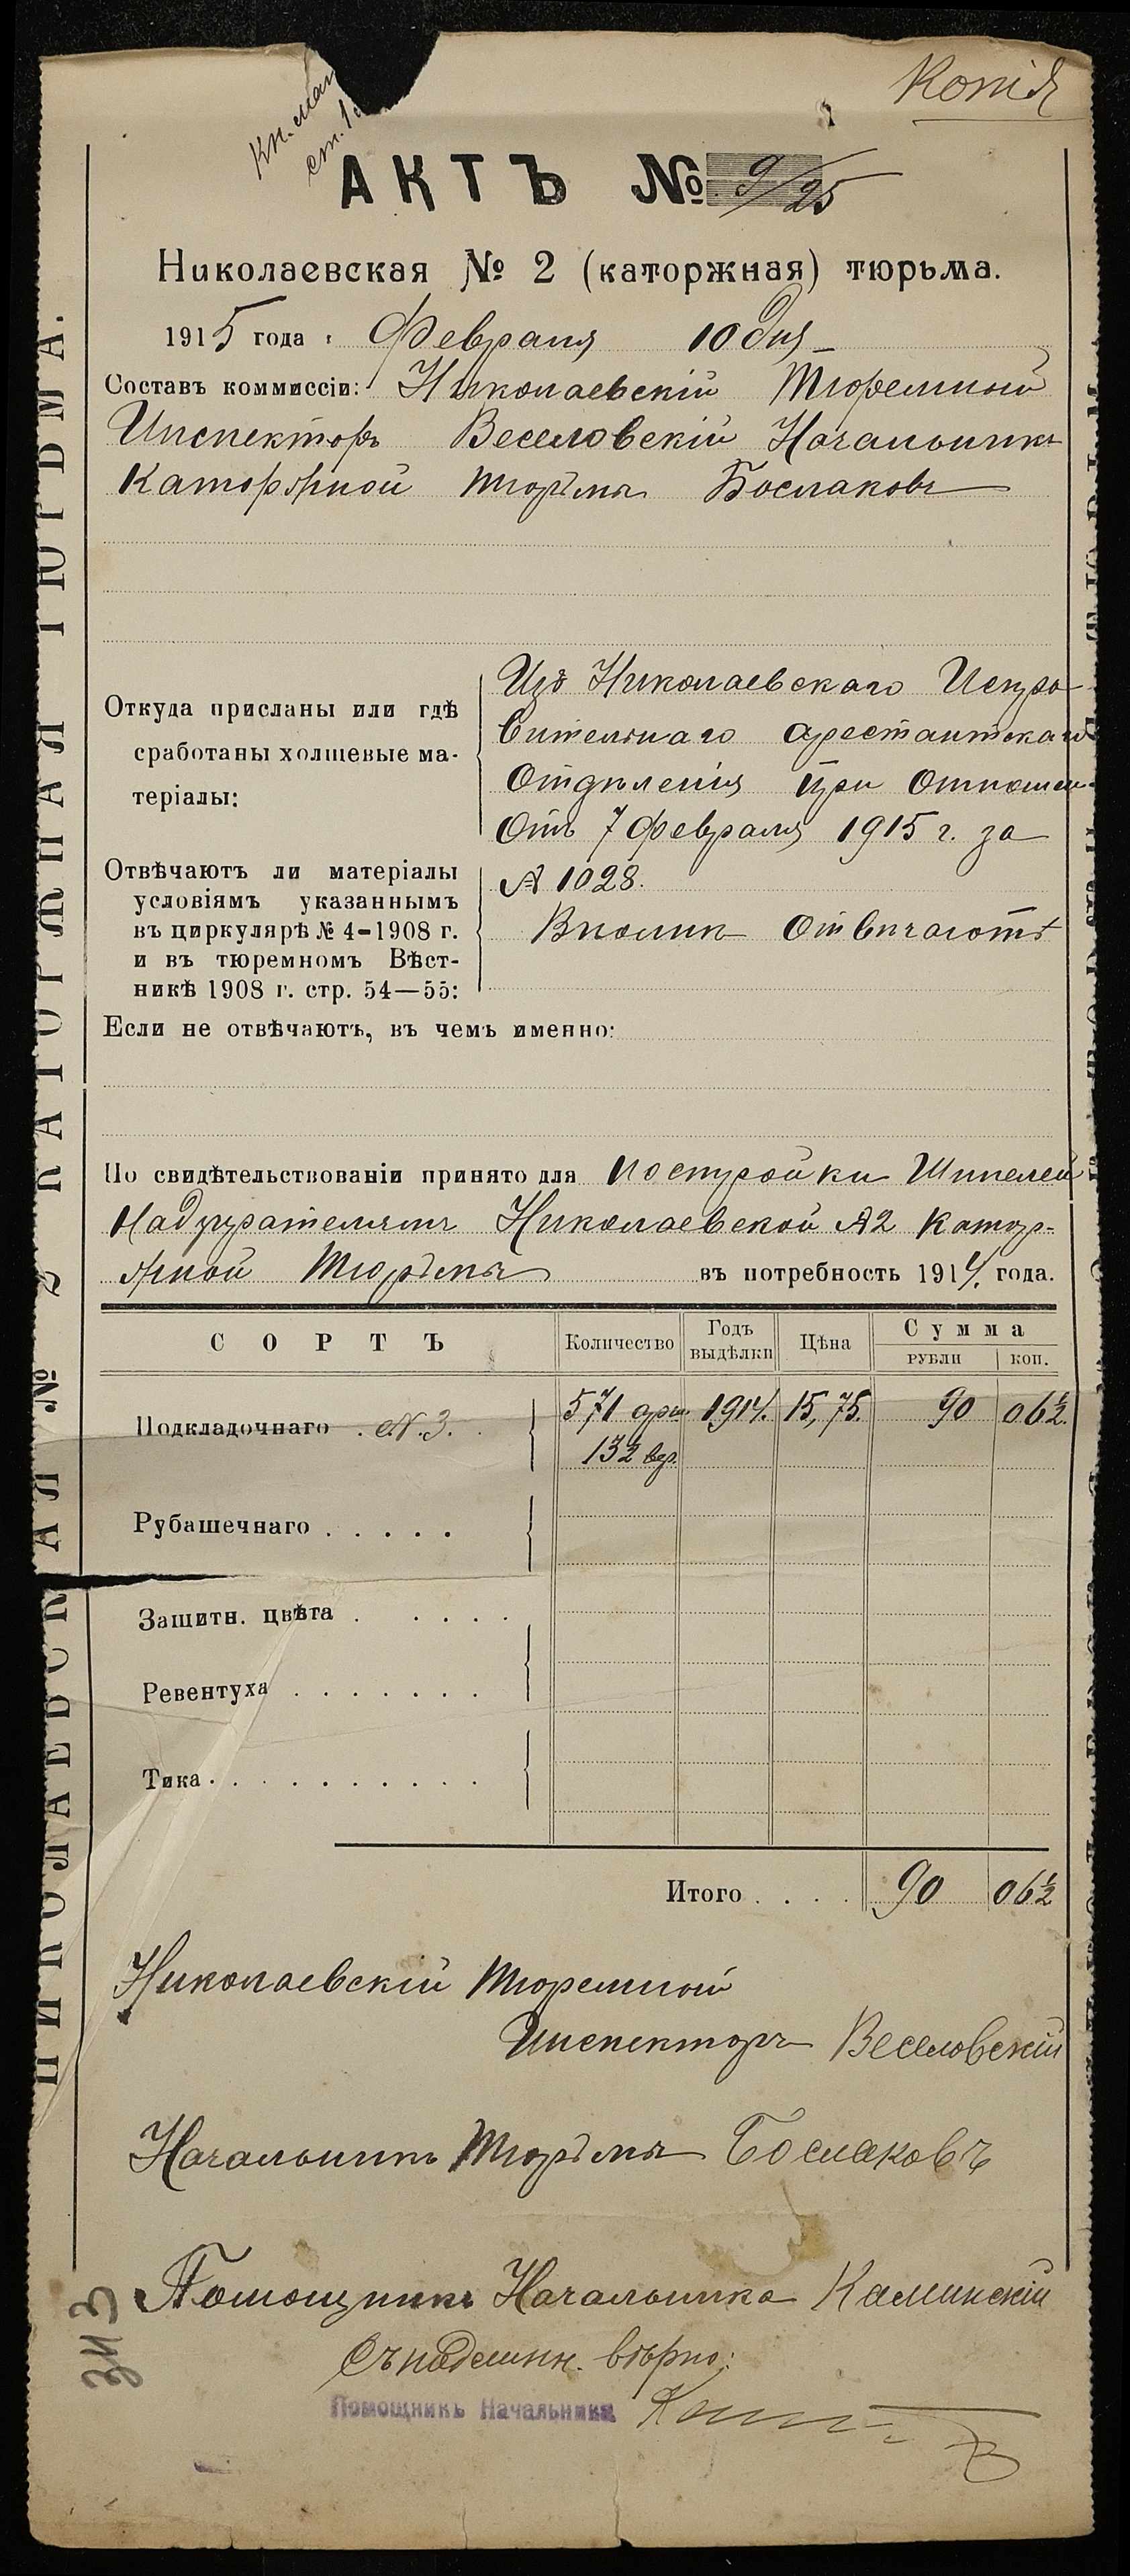 Копія
Кн. мат
ст. 1
АКТЪ № 9/25
Николаевская № 2 (каторжная) тюрьма.
1915 года Февраля 10 дня
Составъ коммиссіи: Николаевскій Тюремный
Инспекторъ Веселовскій Начальникъ
Каторжной тюрьмы Бослаковъ
Откуда присланы или гдѣ сработаны холщевые матеріалы:
Изъ Николаевскаго Испра-
вительнаго арестантскаго
Отдѣленія при Отношен.
Отъ 7 Февраля 1915 г. за
№ 1028.
Отвѣчаютъ ли матеріалы
условіямъ указаннымъ
въ циркулярѣ № 4-1908 г.
и въ тюремномъ Вѣст-
никѣ 1908 г. стр. 54—55:
Вполнѣ Отвѣчаютъ
Если не отвѣчаютъ, въ чемъ именно:
По свидѣтельствованіи принято для постройки Шинелей
Надзирателямъ Николаевской № 2 Катор-
жной Тюрьмы въ потребность 1914 года.
СОРТЪ Количество Годъ выдѣлки Цѣна Сумма
рубли коп.
Подкладочнаго . №.3. 571 арш. 1914. 15,75. 90 06½.
132 вер.
Рубашечнаго . . . . .
Защитн. цвѣта . . . . .
Ревентуха . . . . . . .
Тика . . . . . . . . . .
Итого . . . . 90 06½
Николаевскій Тюремный
Инспекторъ Веселовскій
Начальникъ Тюрьмы Бослаковъ
Помощникъ Начальника Каминскій
Съ подлинн. вѣрно:
Помощникъ Начальника
НИКОЛАЕВСКАЯ № 2 КАТОРЖНАЯ ТЮРЬМА.